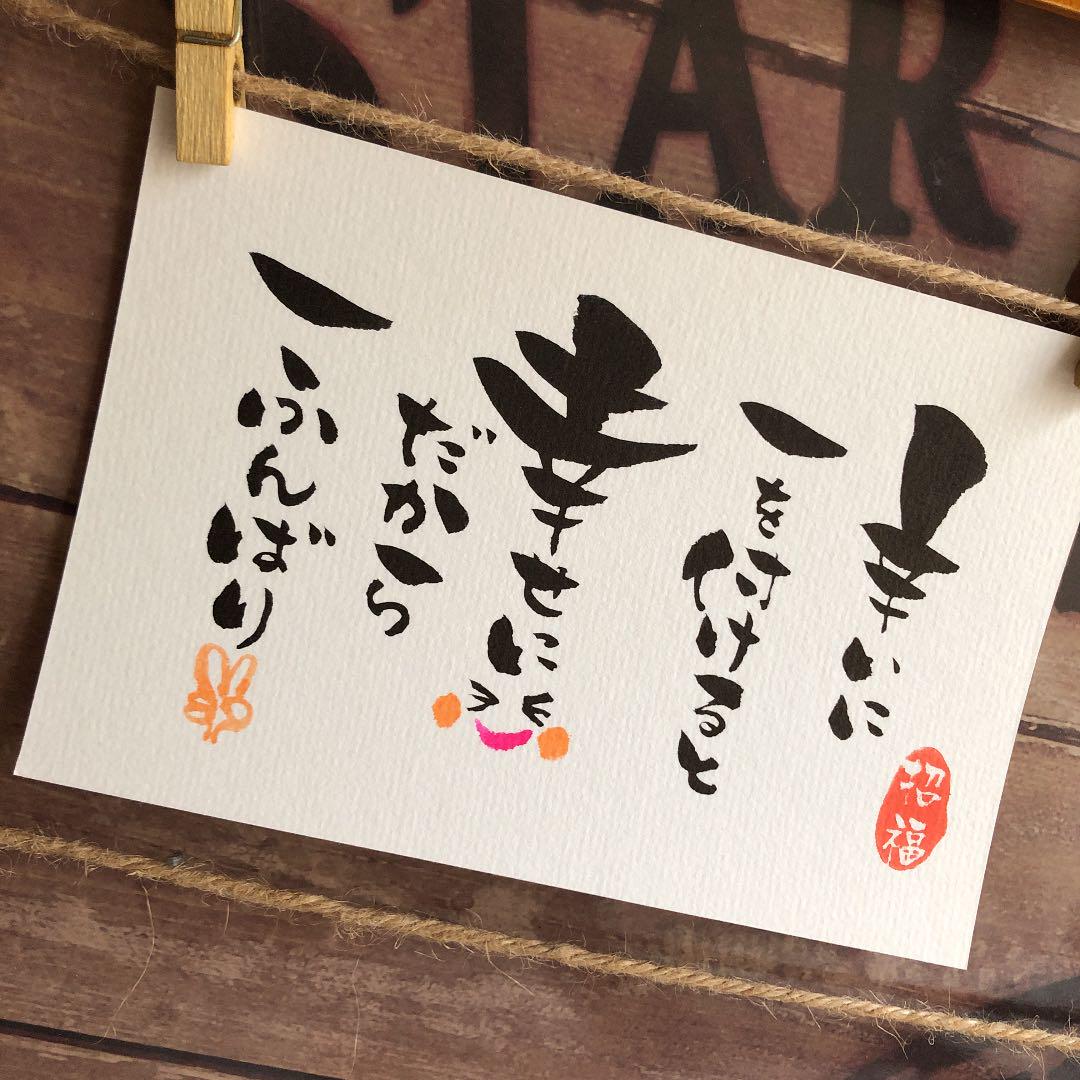 STAR
辛いに
一を付けると
幸せに
だから
一ふんばり
招福